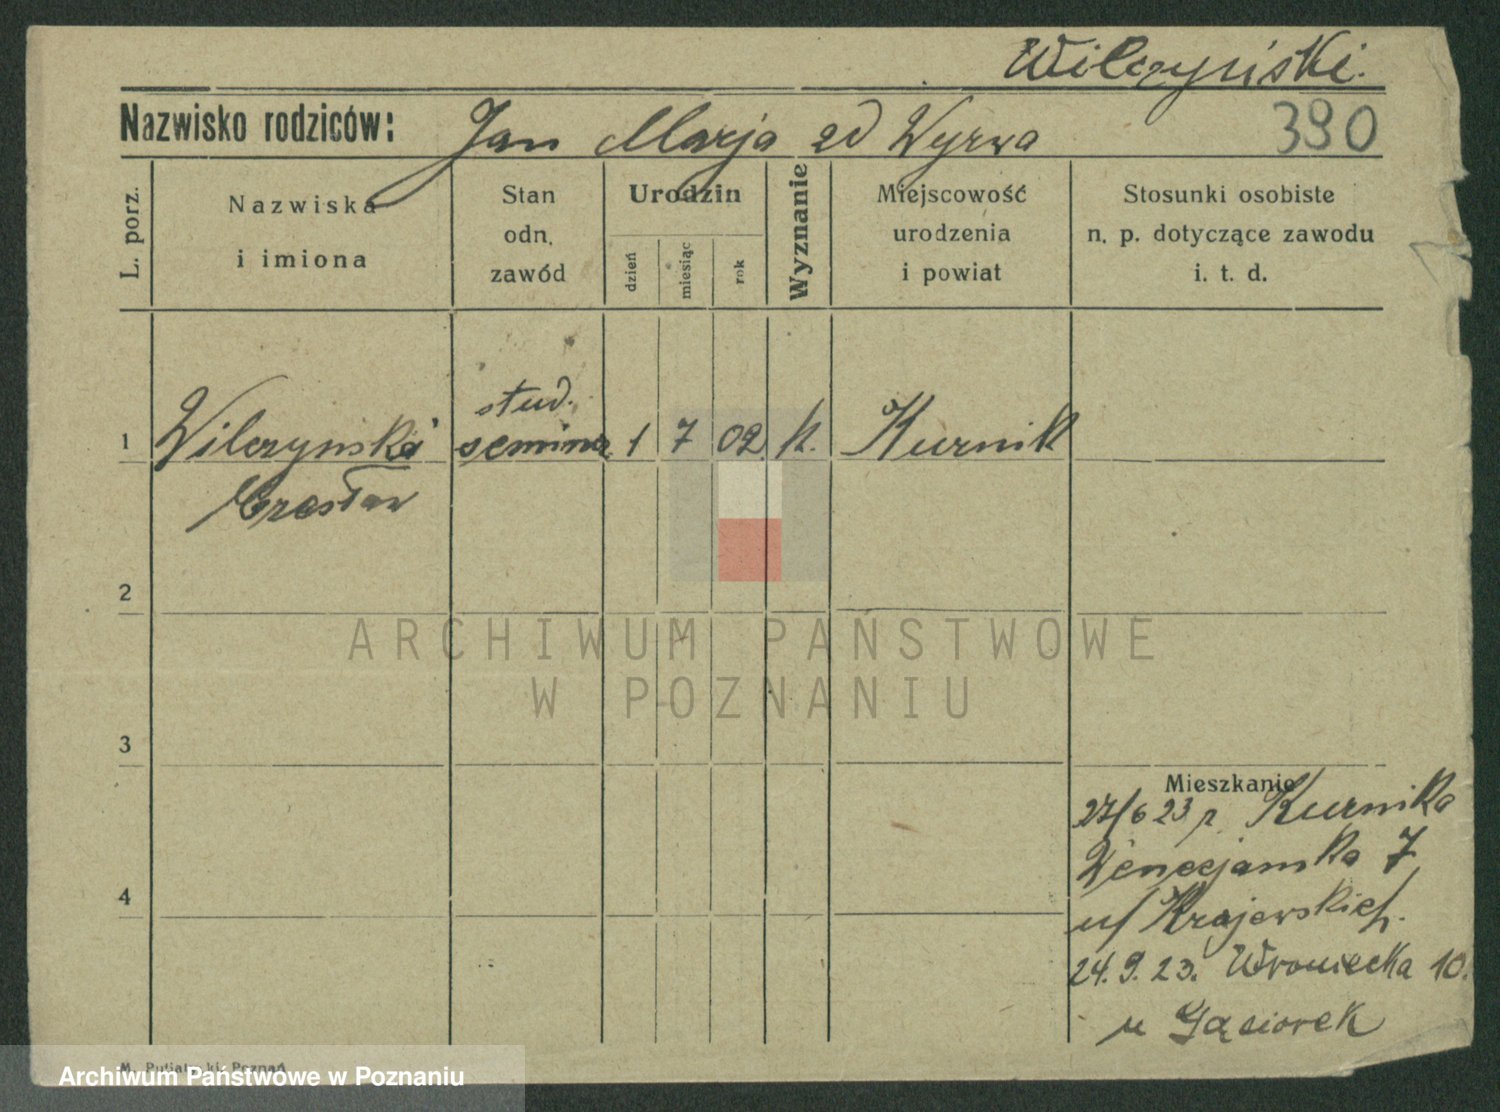 Wilczyński.
Nazwisko rodziców: Jan Marja zd Wyrwa 390
L. porz.
Nazwiska i imiona
Stan odn. zawód
Urodzin
dzień miesiąc rok
Wyznanie
Miejscowość urodzenia i powiat
Stosunki osobiste n. p. dotyczące zawodu i. t. d.
stud.
1 Wilczyński seminar 1 7 02 k. Kurnik
Czesław
2
ARCHIWUM PAŃSTWOWE
W POZNANIU
3
Mieszkanie
27/6 23 z Kurnika
Wenecjanska 7
u/ Krajewskich.
4
24. 9. 23. Wroniecka 10.
u Gąsiorek
Poznań
Archiwum Państwowe w Poznaniu